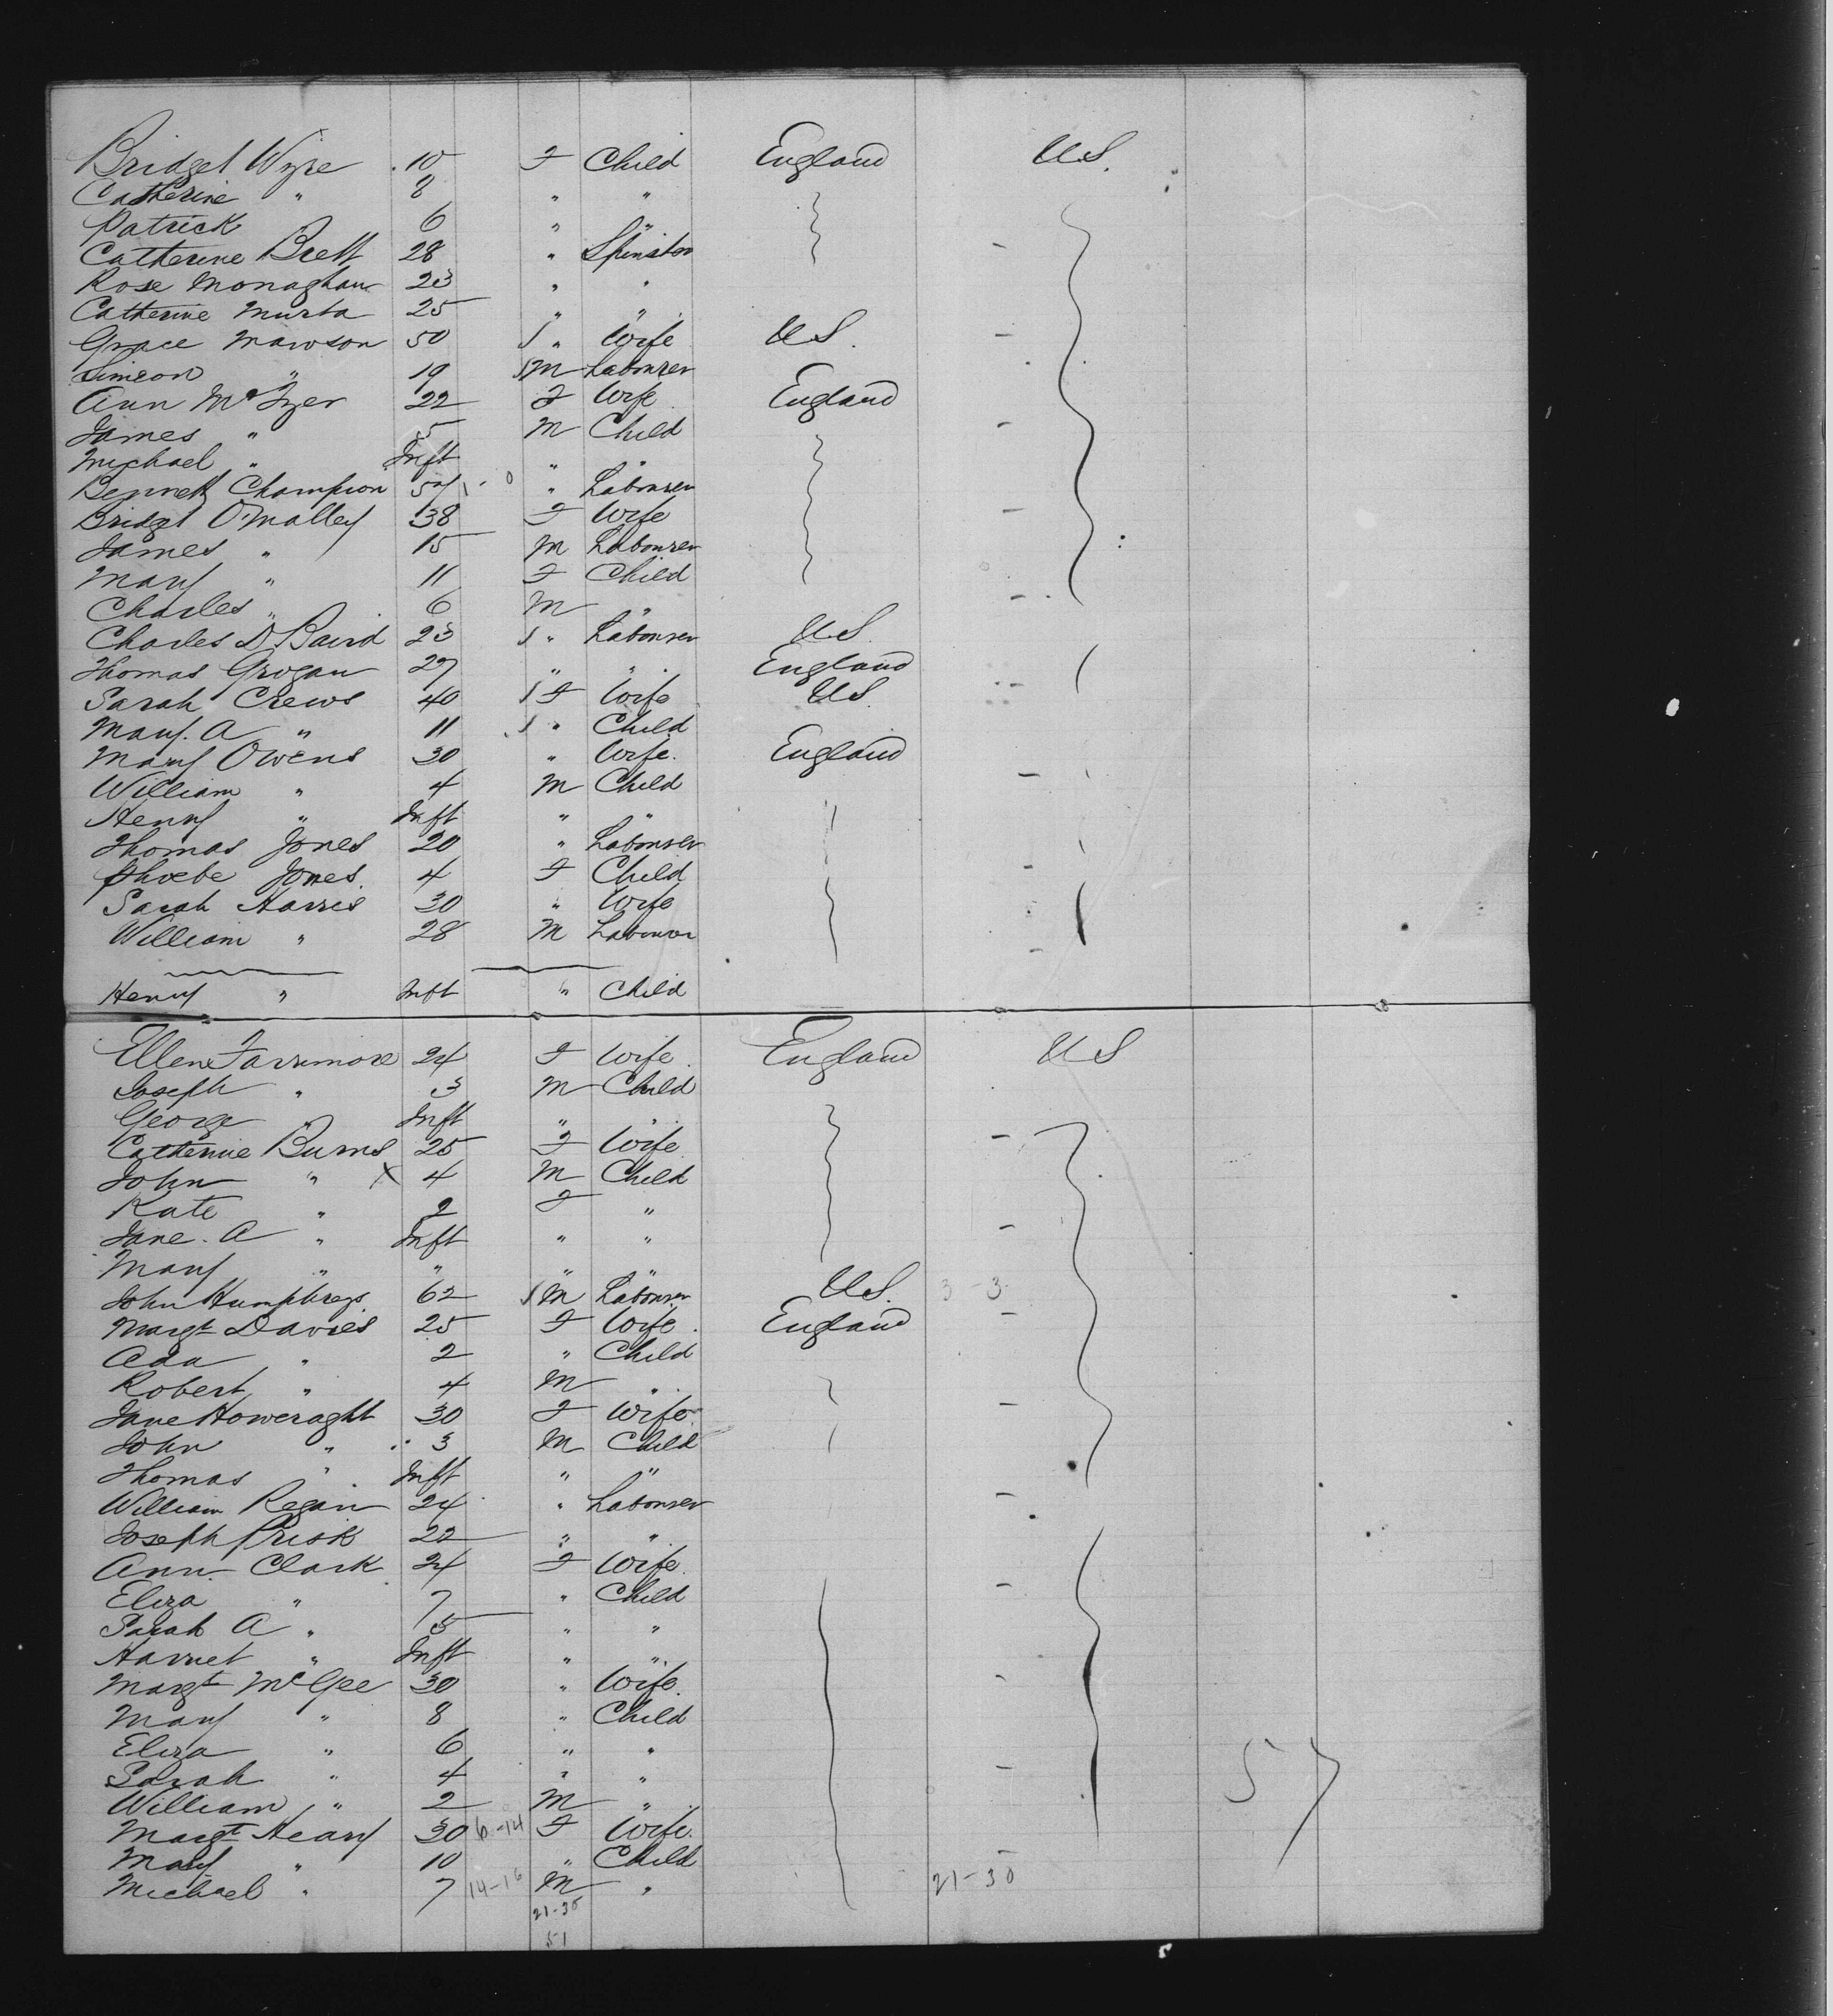 Bridget Wyse 10 F Child England U.S.
Catherine " 8 " "
Patrick 6 " "
Catherine Brett 28 " Spinster
Rose Monaghan 23 " "
Catherine Murta 25 " "
Grace Mawson 50 " Wife U.S.
Simeon " 19 M Labourer
Ann McIyer 22 F Wife England
James " 5 M Child
Michael " Inft " "
Bennett Champion 57 " Labourer
Bridget O'Malley 38 F Wife
James " 15 M Labourer
Mary " 11 F Child
Charles " 6 M "
Charles D Baird 23 " Labourer U.S.
Thomas Grogan 27 " " England
Sarah Crews 40 F Wife U.S.
Mary. A " 11 " Child
Mary Owens 30 " Wife. England
William " 4 M Child
Henry " Inft " "
Thomas Jones 20 " Labourer
Phoebe Jones. 4 F Child
Sarah Harris 30 " Wife
William " 28 M Labourer
Henry " Inft " Child
Ellen Farrimore 24 F Wife England U S
Joseph " 3 M Child
George " Inft " "
Catherine Burns 25 F Wife
John " X 4 M Child
Kate " 2 F "
Jane. A " Inft " "
Mary " " " "
John Humphreys 62 M Labourer U.S. 3 - 3
Margt Davies 25 F Wife England
Ada " 2 " Child
Robert " 4 M "
Jane Howeraght 30 F Wife
John " 3 M Child
Thomas " Inft " "
William Regan 24 " Labourer
Joseph Prisk 22 " "
Ann Clark 24 F Wife
Eliza " 7 " Child
Sarah A " 5 " "
Harriet " Inft " "
Margt McGee 30 " Wife.
Mary " 8 " Child
Eliza " 6 " "
Sarah " 4 " "
William " 2 M " 57
Margt Heary 30 6-14 F Wife.
Mary " 10 " Child
Michael " 7 14-16 M " 21-30
21-30
51